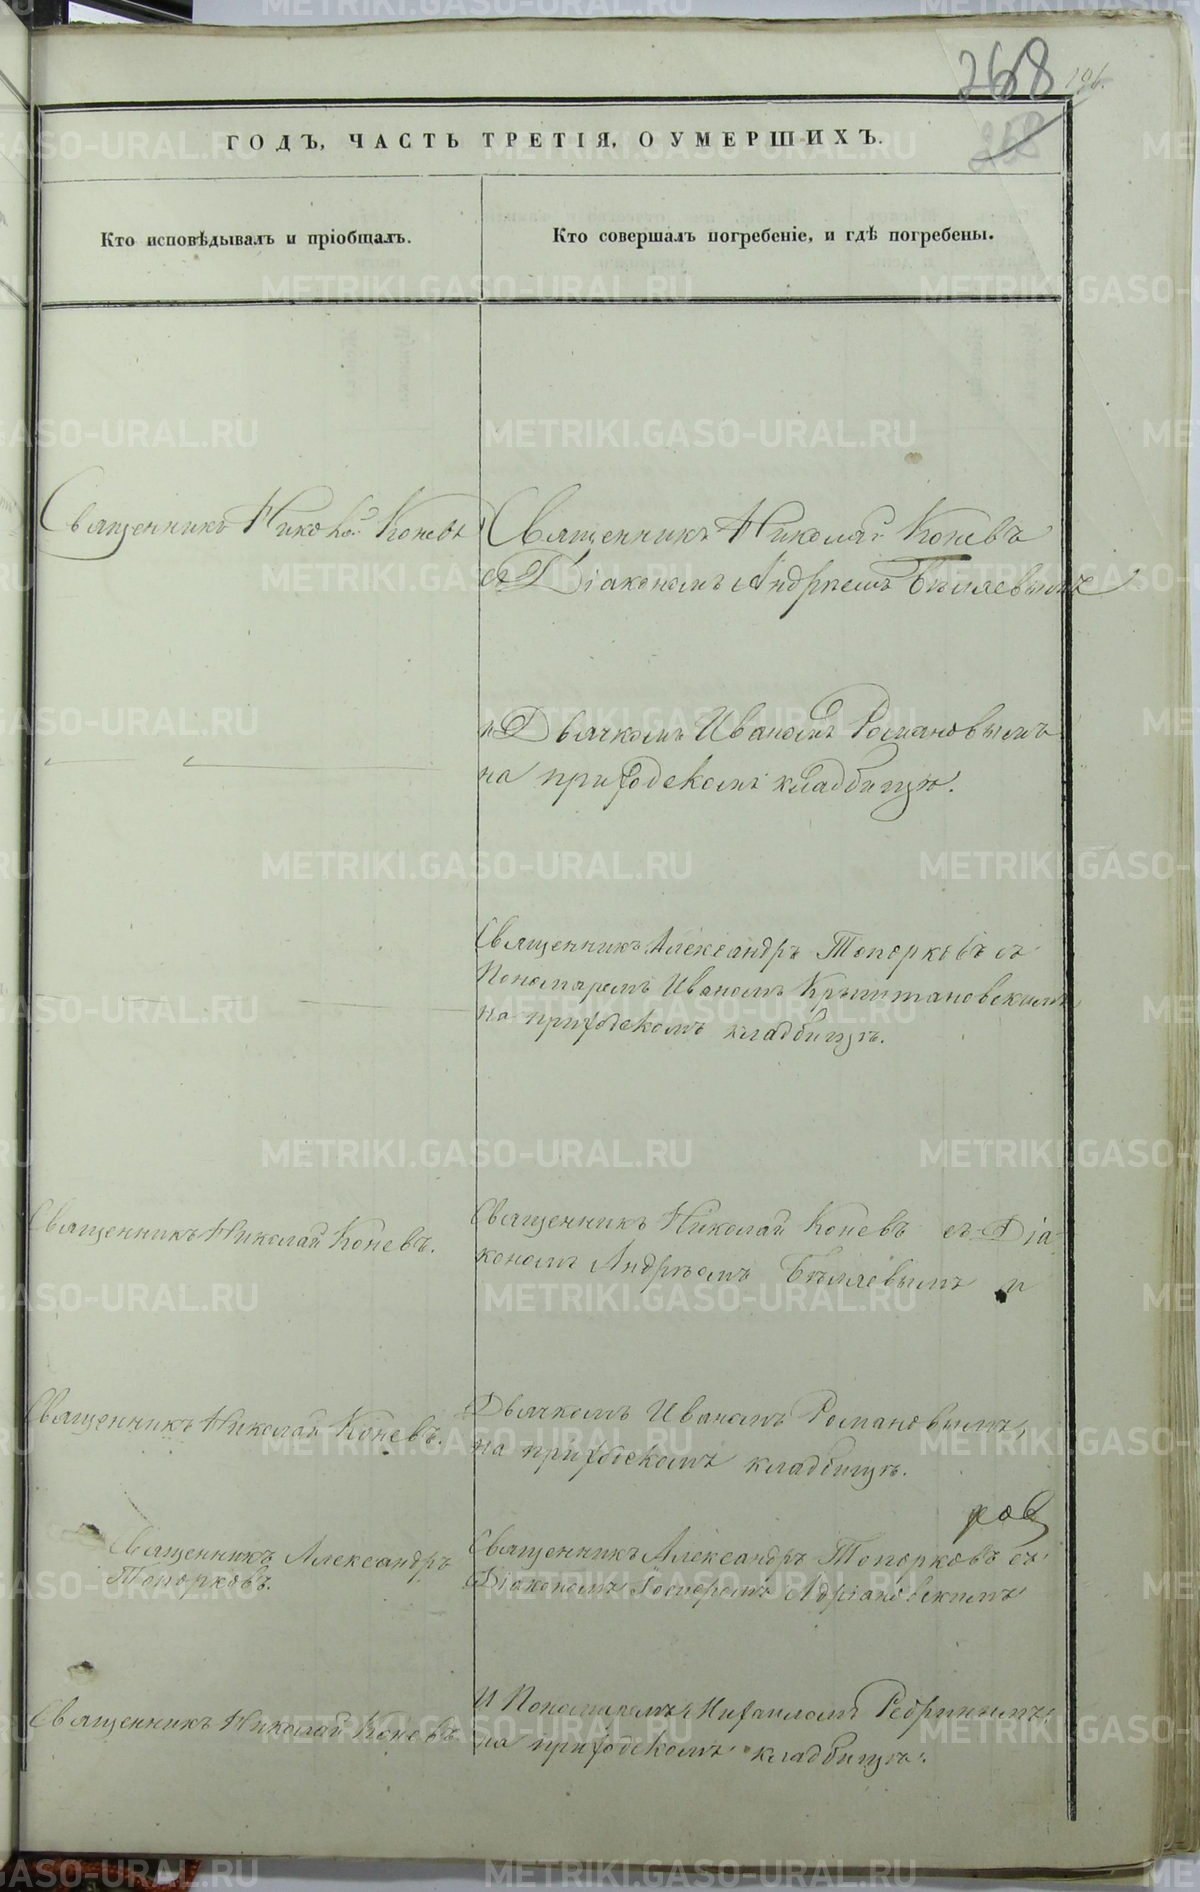 268
ГОДЪ, ЧАСТЬ ТРЕТІЯ, О УМЕРШИХЪ.
Кто исповѣдывалъ и пріобщалъ.
Кто совершалъ погребеніе, и гдѣ погребены.
Священникъ Николай Коневъ
Священникъ Николай Коневъ
съ Діакономъ Андреемъ Бѣляевымъ
и Дьячкомъ Иваномъ Романовымъ
на приходскомъ кладбищѣ.
Священникъ Александръ Топорковъ съ
Пономаремъ Иваномъ
на приходскомъ кладбищѣ.
Священникъ Николай Коневъ.
Священникъ Николай Коневъ съ Діа
кономъ Андреемъ Бѣляевымъ и
Священникъ Николай Коневъ.
Дьячкомъ Иваномъ Романовымъ,
на приходскомъ кладбищѣ.
Священникъ Александръ
Топорковъ.
Священникъ Александръ Топорковъ съ
Діакономъ Адріановскимъ
Священникъ Николай Коневъ
И Пономаремъ Михаиломъ
на приходскомъ кладбищѣ.
METRIKI.GASO-URAL.RU